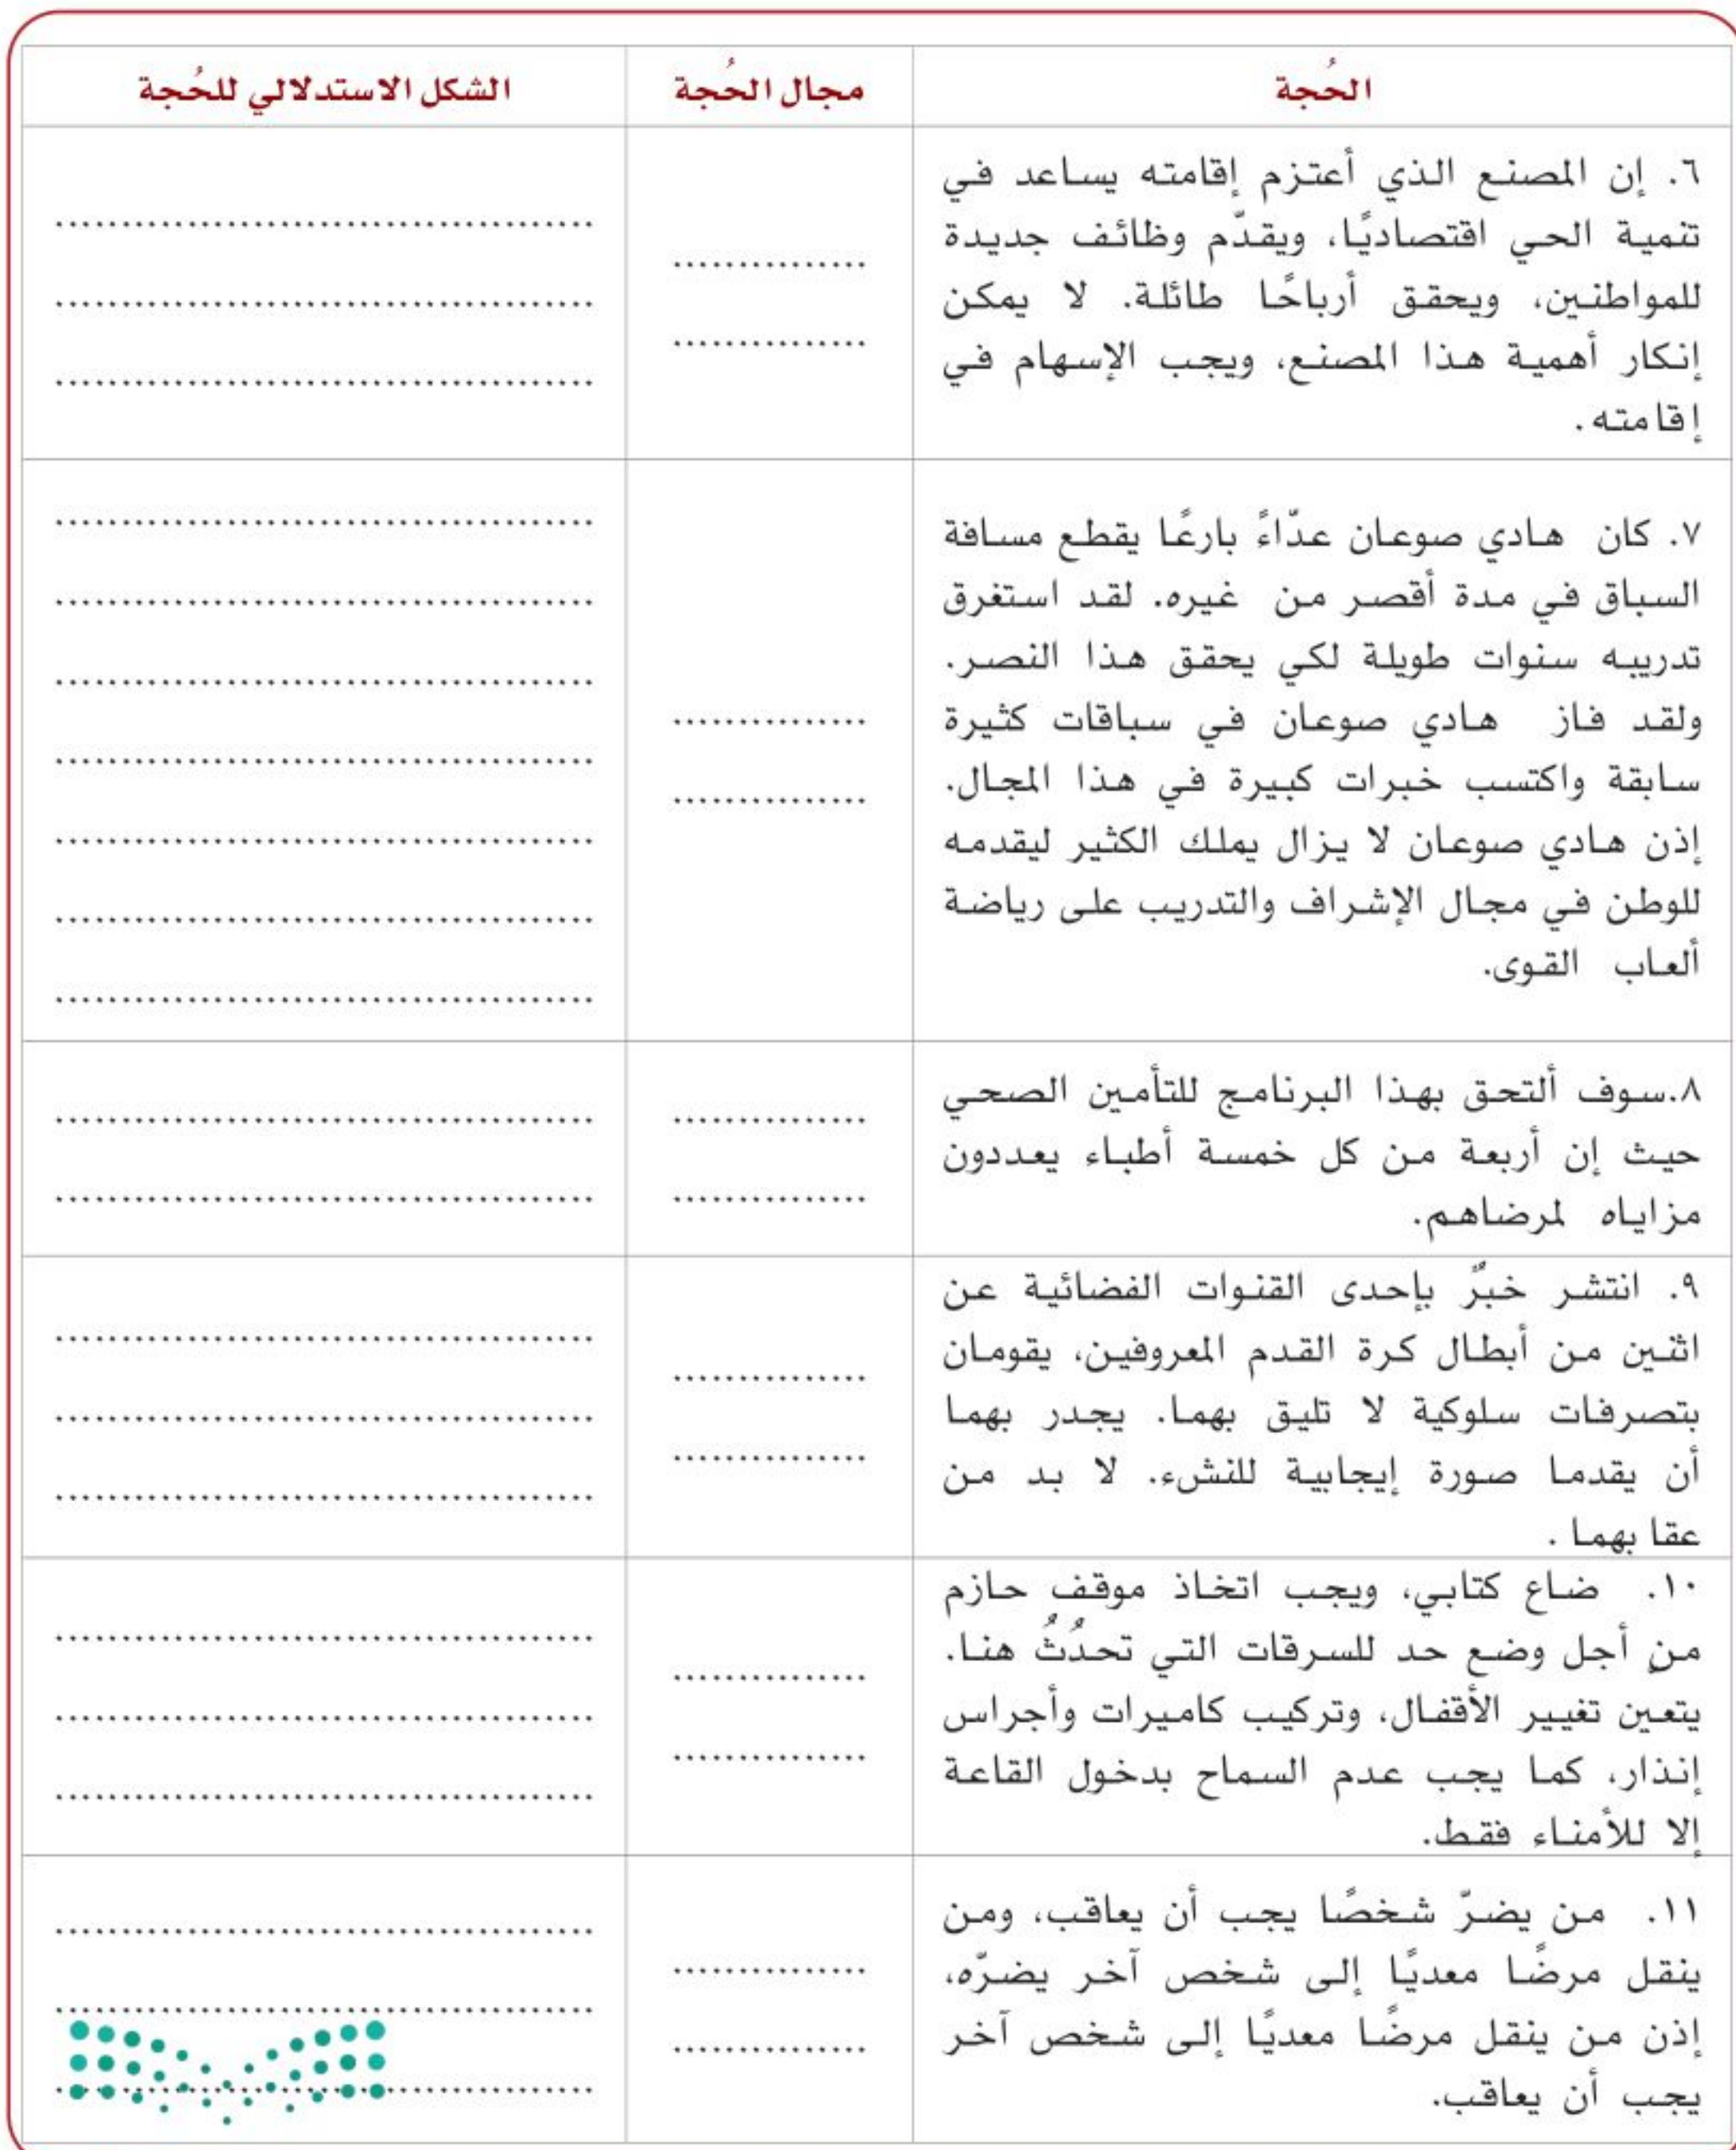 الحُجة
مجال الحُجة
الشكل الاستدلالي للحُجة
٦. إن المصنع الذي أعتزم إقامته يساعد في
تنمية الحي اقتصاديًا، ويقدّم وظائف جديدة
للمواطنين، ويحقق أرباحًا طائلة. لا يمكن
إنكار أهمية هذا المصنع، ويجب الإسهام في
إقامته.
٧. كان هادي صوعان عدّاءً بارعًا يقطع مسافة
السباق في مدة أقصر من غيره. لقد استغرق
تدريبه سنوات طويلة لكي يحقق هذا النصر.
ولقد فاز هادي صوعان في سباقات كثيرة
سابقة واكتسب خبرات كبيرة في هذا المجال.
إذن هادي صوعان لا يزال يملك الكثير ليقدمه
للوطن في مجال الإشراف والتدريب على رياضة
ألعاب القوى.
٨.سوف ألتحق بهذا البرنامج للتأمين الصحي
حيث إن أربعة من كل خمسة أطباء يعددون
مزاياه لمرضاهم.
٩. انتشر خبرٌ بإحدى القنوات الفضائية عن
اثنين من أبطال كرة القدم المعروفين، يقومان
بتصرفات سلوكية لا تليق بهما. يجدر بهما
أن يقدما صورة إيجابية للنشء. لا بد من
عقابهما.
١٠. ضاع كتابي، ويجب اتخاذ موقف حازم
من أجل وضع حد للسرقات التي تحدُثُ هنا.
يتعين تغيير الأقفال، وتركيب كاميرات وأجراس
إنذار، كما يجب عدم السماح بدخول القاعة
إلا للأمناء فقط.
١١. من يضرّ شخصًا يجب أن يعاقب، ومن
ينقل مرضًا معديًا إلى شخص آخر يضرّه،
إذن من ينقل مرضًا معديًا إلى شخص آخر
يجب أن يعاقب.